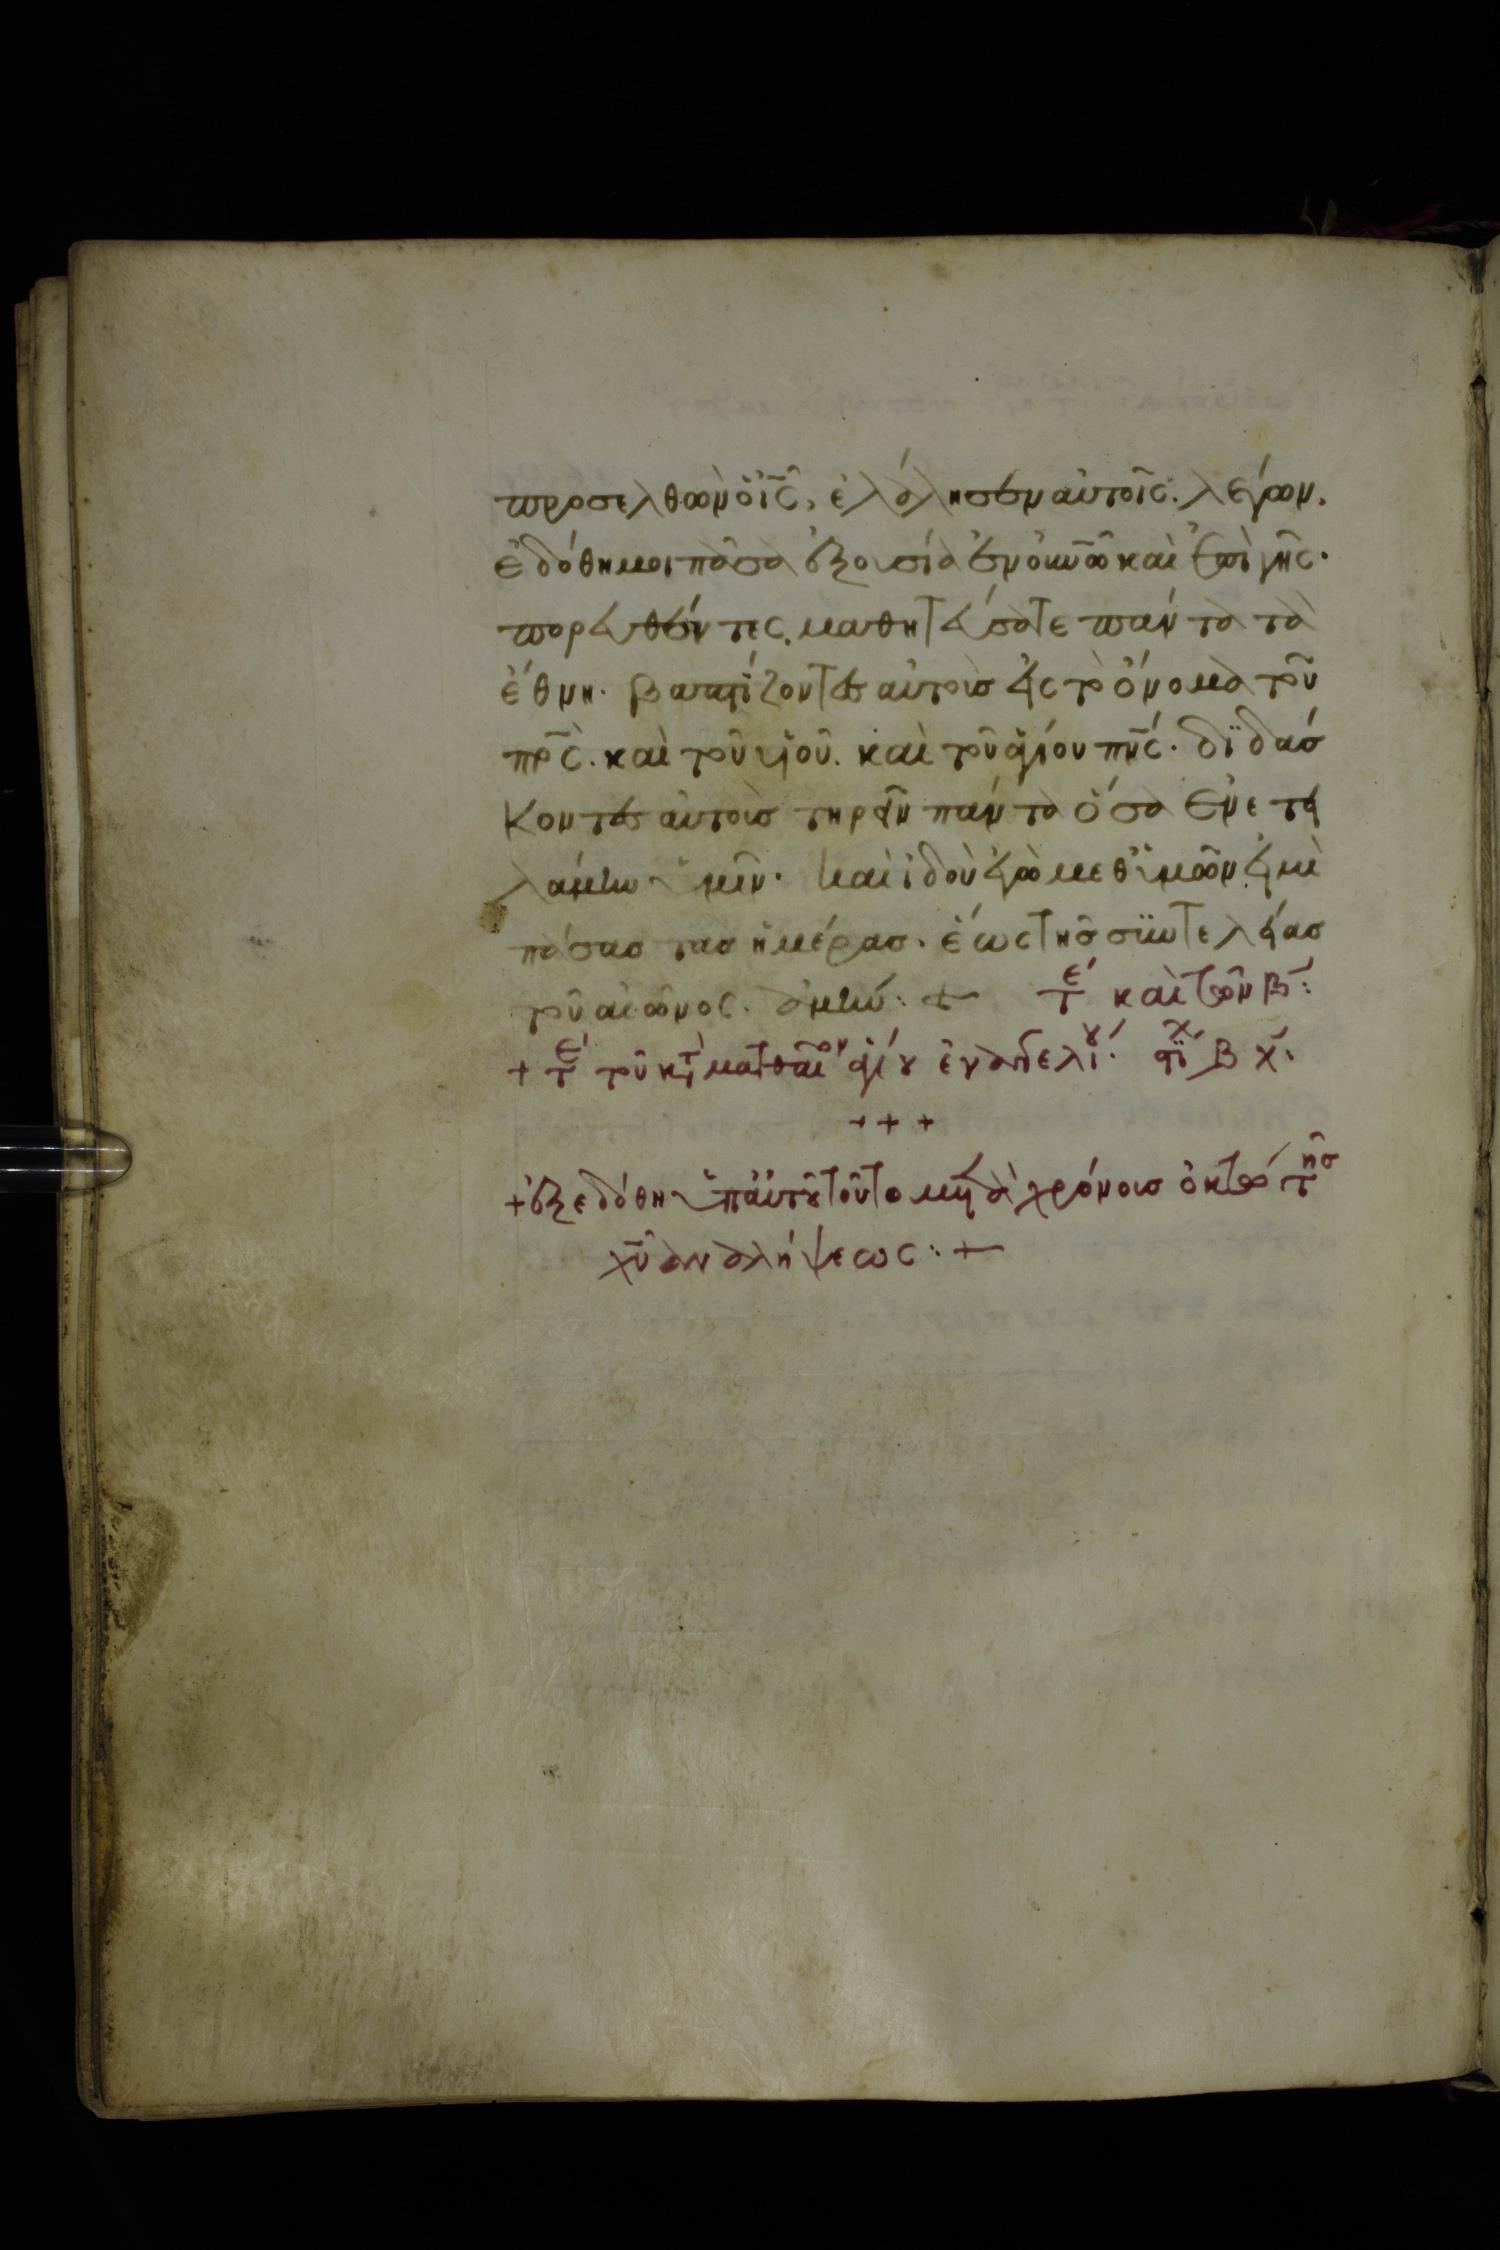 προσελθὼν ὁ ις̅, ἐλάλησεν αὐτοῖς. λέγων.
ἐδόθη μοι πᾶσα ἐξουσία ἐν οὐνῶ καὶ ἐπὶ γῆς.
πορευθέντες. μαθητεύσατε πάντα τὰ
ἔθνη. βαπτίζοντες αὐτοὺσ εἰς τὸ ὄνομα τοῦ
πρ̅ς. καὶ τοῦ υἱοῦ. καὶ τοῦ ἁγίου πν̅ς. διδάσ
κοντες αὐτοὺσ τηρεῖν πάντα ὅσα ἐνετει
λάμην ὑμῖν. καὶ ἰδοὺ ἐγὼ μεθ ὑμῶν εἰμὶ
πάσασ τὰσ ἡμέρασ. ἕως τῆσ συντελείασ
τοῦ αἰῶνος. ἀμήν: + τε καὶ τῶν β:
+ τε τοῦ κτ ματθαῖον ἁγίου εὐαγγελι. στι β χ.
+ + +
+ ἐξεδόθη ὑπ αὐτοῦ τοῦτο μετὰ χρόνουσ ὀκτώ τῆσ
χυ̅ ἀναλήψεως: +